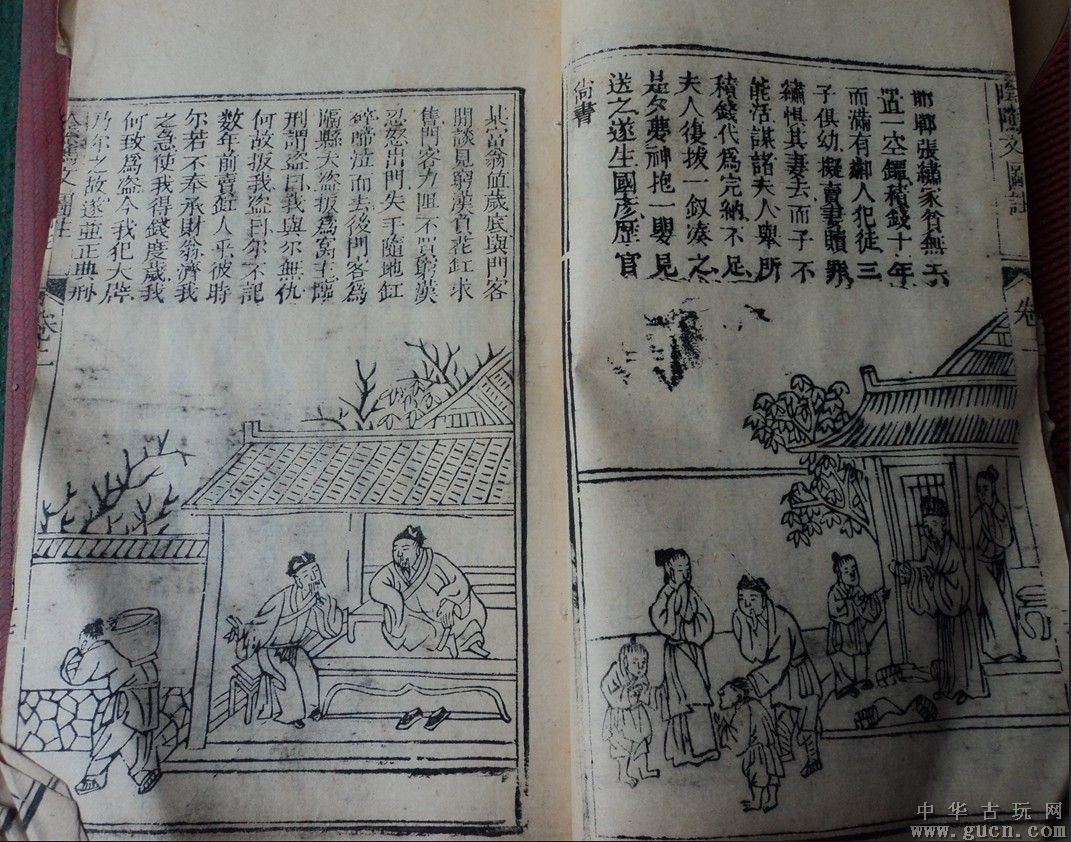 陰隲文圖註
卷
邯鄲張繡家貧無子
置一空鐔積錢十年
而滿有鄰人犯徒三
子俱幼擬賣妻贖罪
繡惧其妻去而子不
能活謀諸夫人舉所
積錢代爲完納不足
夫人復拔一釵湊之
是夕夢神抱一嬰兒
送之遂生國彥歷官
尚書
某富翁值歲底與門客
閒談見窮漢負花缸求
售門客力阻不買窮漢
忍怒出門失手隨地缸
碎啼泣而去後門客爲
隣縣大盜扳爲窩主臨
刑謂盜曰我與尔無仇
何故扳我盜曰尔不記
數年前賣缸人乎彼時
尔若不奉承財翁濟我
之急使我得錢度歲我
何致爲盜今我犯大辟
乃尔之故遂並正典刑
文圖註
卷二
中华古玩网
www.gucn.com